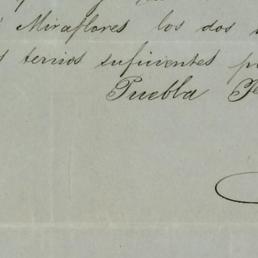 Miraflores los dos
ternos suficientes
Puebla